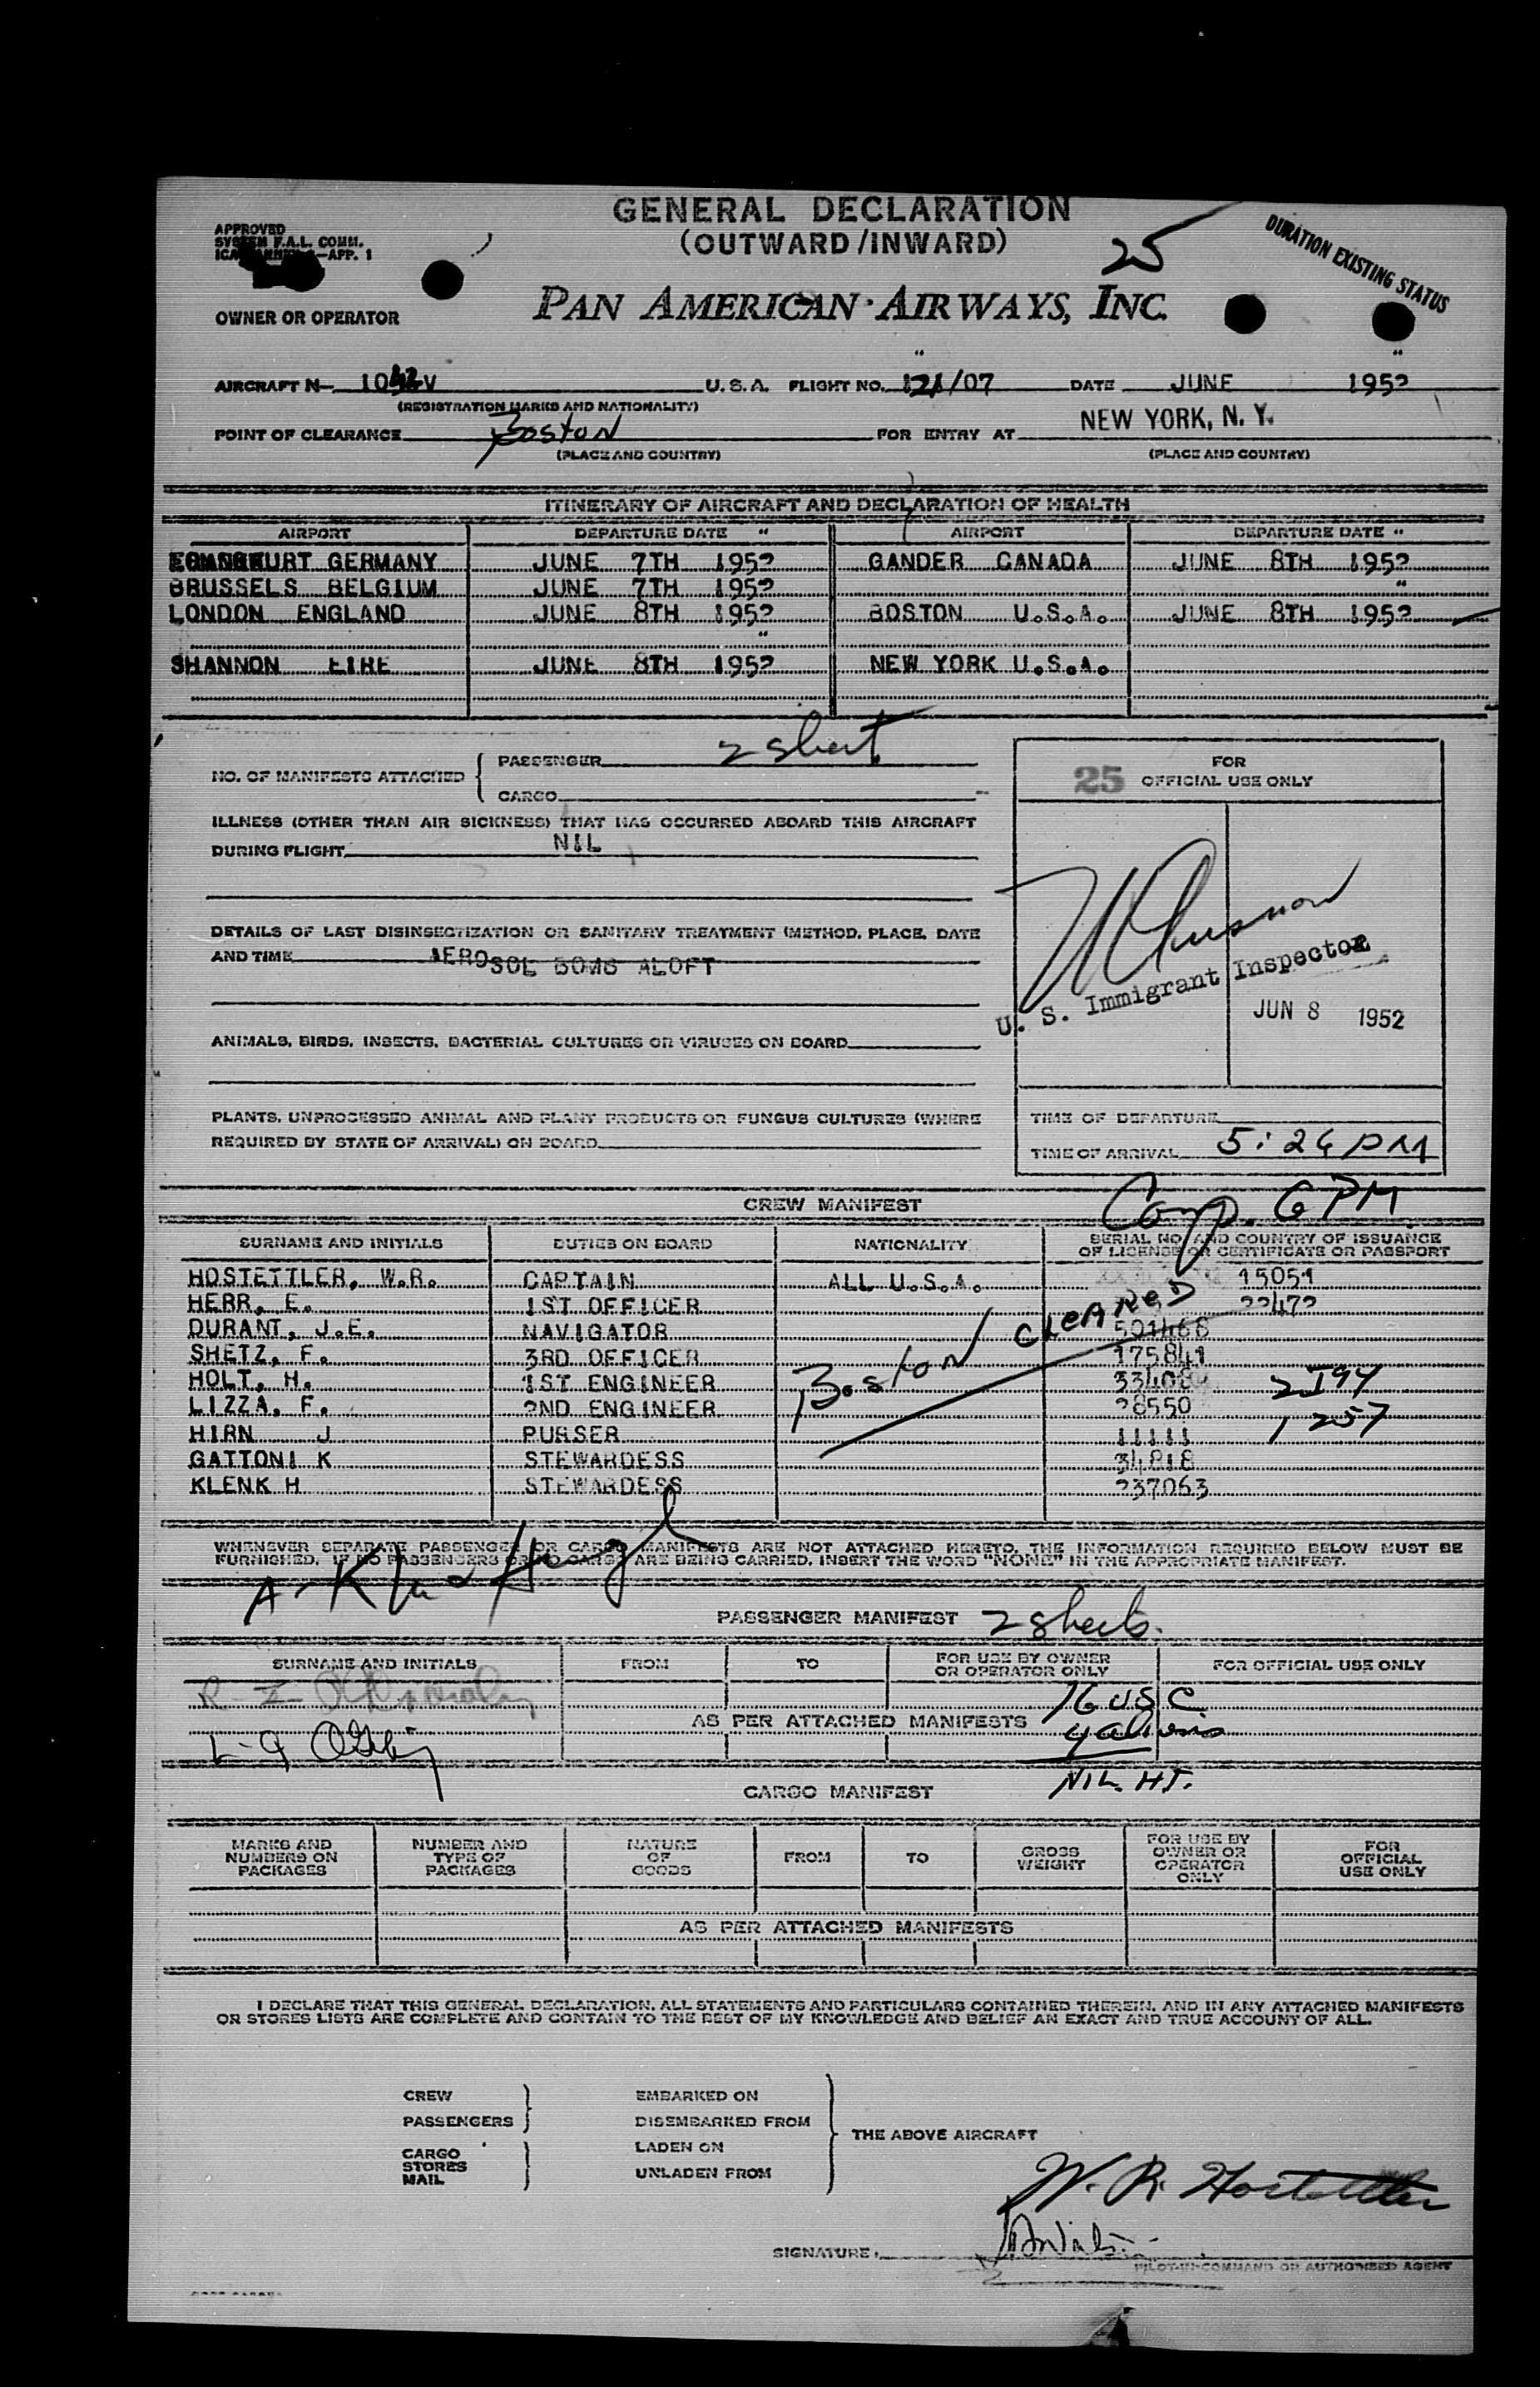 GENERAL DECLARATION
(OUTWARD/INWARD)
APPROVED
SYSTEM F.A.L. COMM.
—APP. 1
25
DURATION EXISTING STATUS
OWNER OR OPERATOR
PAN AMERICAN AIRWAYS, INC.
AIRCRAFT N— U.S.A. FLIGHT NO. 121/07 DATE JUNE 1952
(REGISTRATION MARKS AND NATIONALITY)
POINT OF CLEARANCE Boston FOR ENTRY AT NEW YORK, N. Y.
(PLACE AND COUNTRY) (PLACE AND COUNTRY)
ITINERARY OF AIRCRAFT AND DECLARATION OF HEALTH
AIRPORT DEPARTURE DATE AIRPORT DEPARTURE DATE
GERMANY JUNE 7TH 1952 GANDER CANADA JUNE 8TH 1952
BRUSSELS BELGIUM JUNE 7TH 1952
LONDON ENGLAND JUNE 8TH 1952 BOSTON U.S.A. JUNE 8TH 1952
SHANNON EIRE JUNE 8TH 1952 NEW YORK U.S.A.
NO. OF MANIFESTS ATTACHED
PASSENGER 2 sheet
CARGO
FOR
25 OFFICIAL USE ONLY
ILLNESS (OTHER THAN AIR SICKNESS) THAT HAS OCCURRED ABOARD THIS AIRCRAFT
DURING FLIGHT NIL
DETAILS OF LAST DISINSECTIZATION OR SANITARY TREATMENT (METHOD, PLACE, DATE
AND TIME AEROSOL BOMB ALOFT
U. S. Immigrant Inspector
JUN 8 1952
ANIMALS, BIRDS, INSECTS, BACTERIAL CULTURES OR VIRUSES ON BOARD
PLANTS, UNPROCESSED ANIMAL AND PLANT PRODUCTS OR FUNGUS CULTURES (WHERE
REQUIRED BY STATE OF ARRIVAL) ON BOARD
TIME OF DEPARTURE
TIME OF ARRIVAL 5:26 PM
Comp. 6 PM
CREW MANIFEST
SURNAME AND INITIALS DUTIES ON BOARD NATIONALITY SERIAL NO. AND COUNTRY OF ISSUANCE
OF LICENSE OR CERTIFICATE OR PASSPORT
HOSTETTLER, W.R. CAPTAIN ALL U.S.A. 15051
HERR, E. 1ST OFFICER 22472
DURANT, J.E. NAVIGATOR 501468
SHETZ, F. 3RD OFFICER 175841
HOLT, H. 1ST ENGINEER 33408
LIZZA, F. 2ND ENGINEER 28550
HIRN J PURSER 11111
GATTONI K STEWARDESS 34818
KLENK H STEWARDESS 237063
Boston CLEARED
2 I94
1 257
WHENEVER SEPARATE PASSENGER OR CARGO MANIFESTS ARE NOT ATTACHED HERETO, THE INFORMATION REQUIRED BELOW MUST BE
FURNISHED. IF NO PASSENGERS OR NO CARGO ARE BEING CARRIED, INSERT THE WORD "NONE" IN THE APPROPRIATE MANIFEST.
PASSENGER MANIFEST 2 sheets.
SURNAME AND INITIALS FROM TO FOR USE BY OWNER
OR OPERATOR ONLY FOR OFFICIAL USE ONLY
AS PER ATTACHED MANIFESTS
76 USC
4 aliens
NIL. HT.
CARGO MANIFEST
MARKS AND
NUMBERS ON
PACKAGES
NUMBER AND
TYPE OF
PACKAGES
NATURE
OF
GOODS
FROM
TO
GROSS
WEIGHT
FOR USE BY
OWNER OR
OPERATOR
ONLY
FOR
OFFICIAL
USE ONLY
AS PER ATTACHED MANIFESTS
I DECLARE THAT THIS GENERAL DECLARATION, ALL STATEMENTS AND PARTICULARS CONTAINED THEREIN, AND IN ANY ATTACHED MANIFESTS
OR STORES LISTS ARE COMPLETE AND CONTAIN TO THE BEST OF MY KNOWLEDGE AND BELIEF AN EXACT AND TRUE ACCOUNT OF ALL.
CREW
PASSENGERS
CARGO
STORES
MAIL
EMBARKED ON
DISEMBARKED FROM
LADEN ON
UNLADEN FROM
THE ABOVE AIRCRAFT
W. R. Hostettler
SIGNATURE
PILOT-IN-COMMAND OR AUTHORISED AGENT